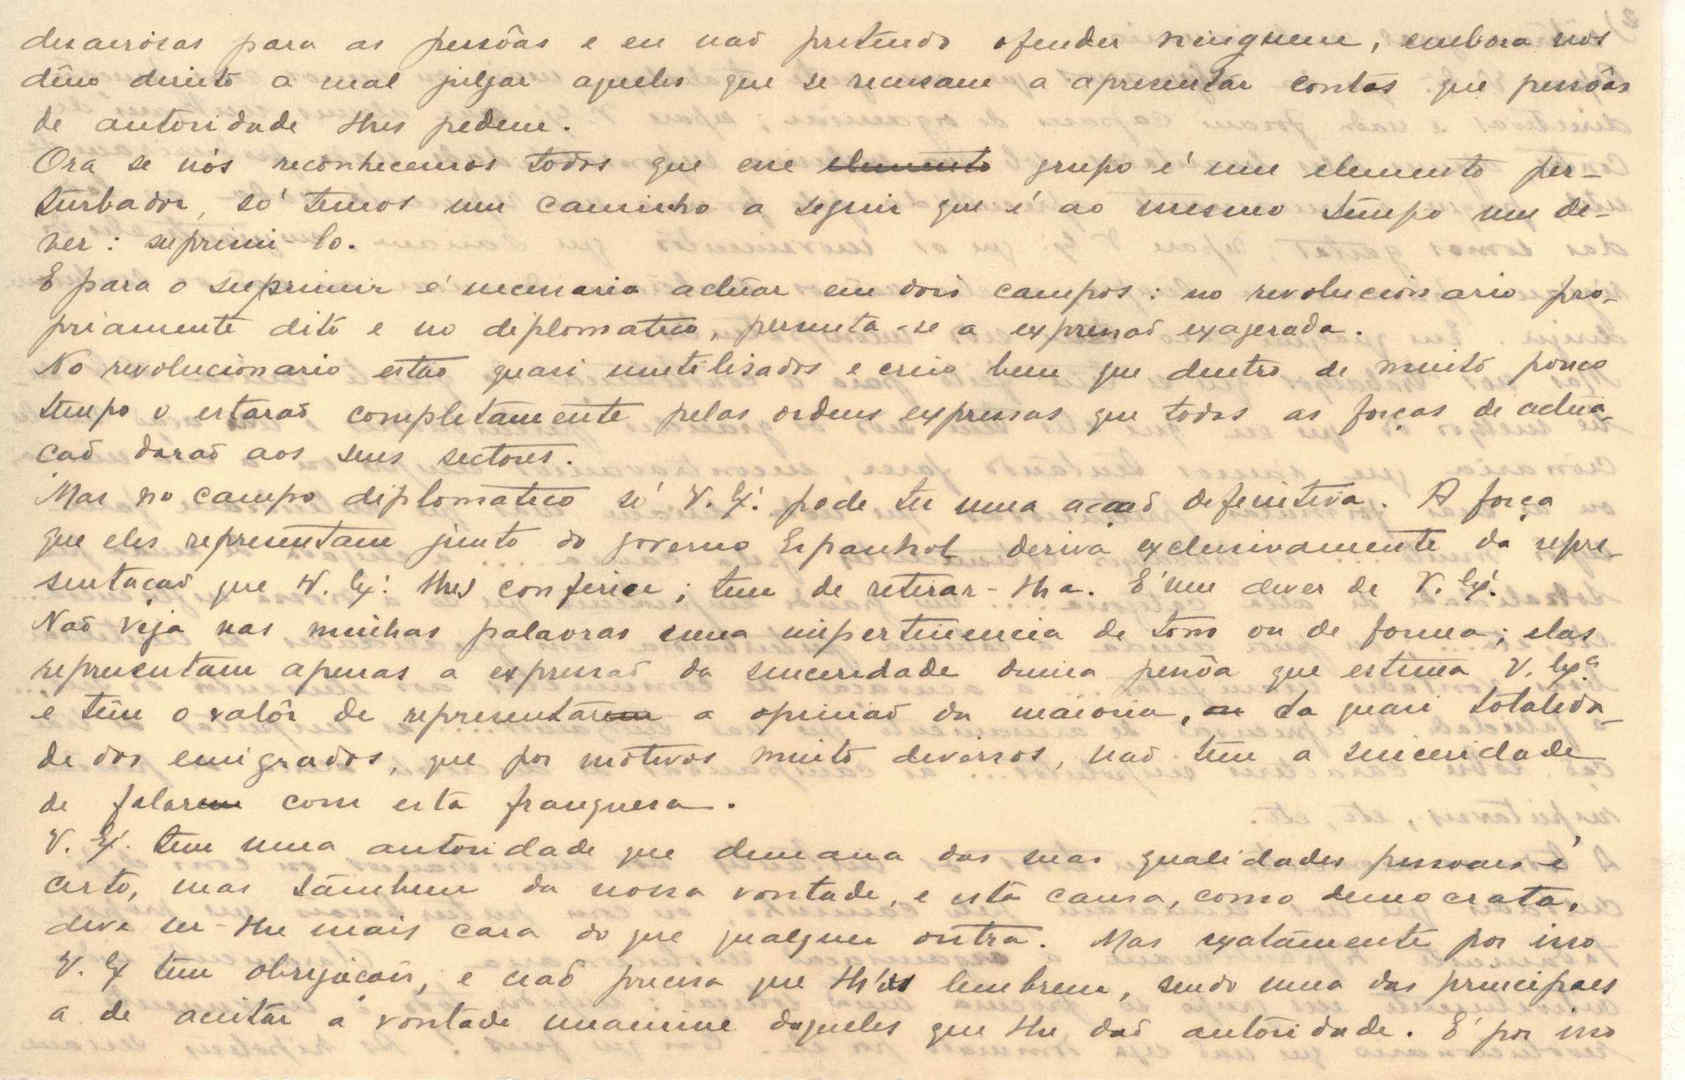 desairosas para as pessôas e eu não pretendo ofender ninguem, embora nos
dêno direito a mal julgar aqueles que se recusam a apresentar contas que pessôas
de autoridade lhes pedem.
Ora se nós reconhecemos todos que esse elemento grupo é um elemento per-
turbador, só temos um caminho a seguir que é ao mesmo tempo um de-
ver: suprimi-lo.
E para o suprimir é necessario actuar em dois campos: no revolucionario pro-
priamente dito e no diplomatico, permita-se a expressão exagerada.
No revolucionario estão quasi inutilisados e creio bem que dentro de muito pouco
tempo o estarão completamente pelas ordens expressas que todas as forças de actua-
ção darão aos seus sectores.
Mas no campo diplomatico só V. Ex.ª pode ter uma acção definitiva. A força
que eles representam junto do governo Espanhol deriva exclusivamente da repre-
sentação que V. Ex.ª lhes confere; tem de retirar-lha. É um dever de V. Ex.ª
Não veja nas minhas palavras uma impertinencia de tom ou de forma; elas
representam apenas a expressão da sinceridade duma pessôa que estima V. Exª
e têm o valôr de representarem a opinião da maioria, ou da quasi totalida-
de dos emigrados, que por motivos muito diversos, não têm a sinceridade
de falarem com esta franquesa.
V. Ex. tem uma autoridade que demana das suas qualidades pessoaes é
certo, mas tâmbem da nossa vontade, e esta causa, como democrata,
deve ser-lhe mais cara do que qualquer outra. Mas exatâmente por isso
V. Ex tem obrigações, e não precisa que lh'as lembrem, sendo uma das principaes
a de aceitar a vontade unanime daqueles que lhe dão autoridade. É por isso